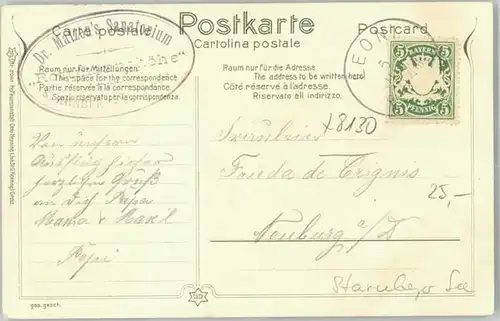 Carte postale
Postkarte
Postcard
Cartolina postale
Dr. Matzen's Sanatorium
Raum nur für Mitteilungen
This space for the correspondence
Partie réservée à la correspondance
Spazio riservato per la corrispondenza
Raum nur für die Adresse
The address to be written here
Côté réservé à l'adresse
Riservato all indirizzo.
LEONI
BAYERN
5 5
5 5
PFENNIG
x8130
Von unserm
Ausflug hieher
herzlichen Gruß
an Dich Papa
Mama &
Pepi
Fräulein
Frieda de Crignis
Neuburg a/D
25,-
Starnberger See
ges. gesch.